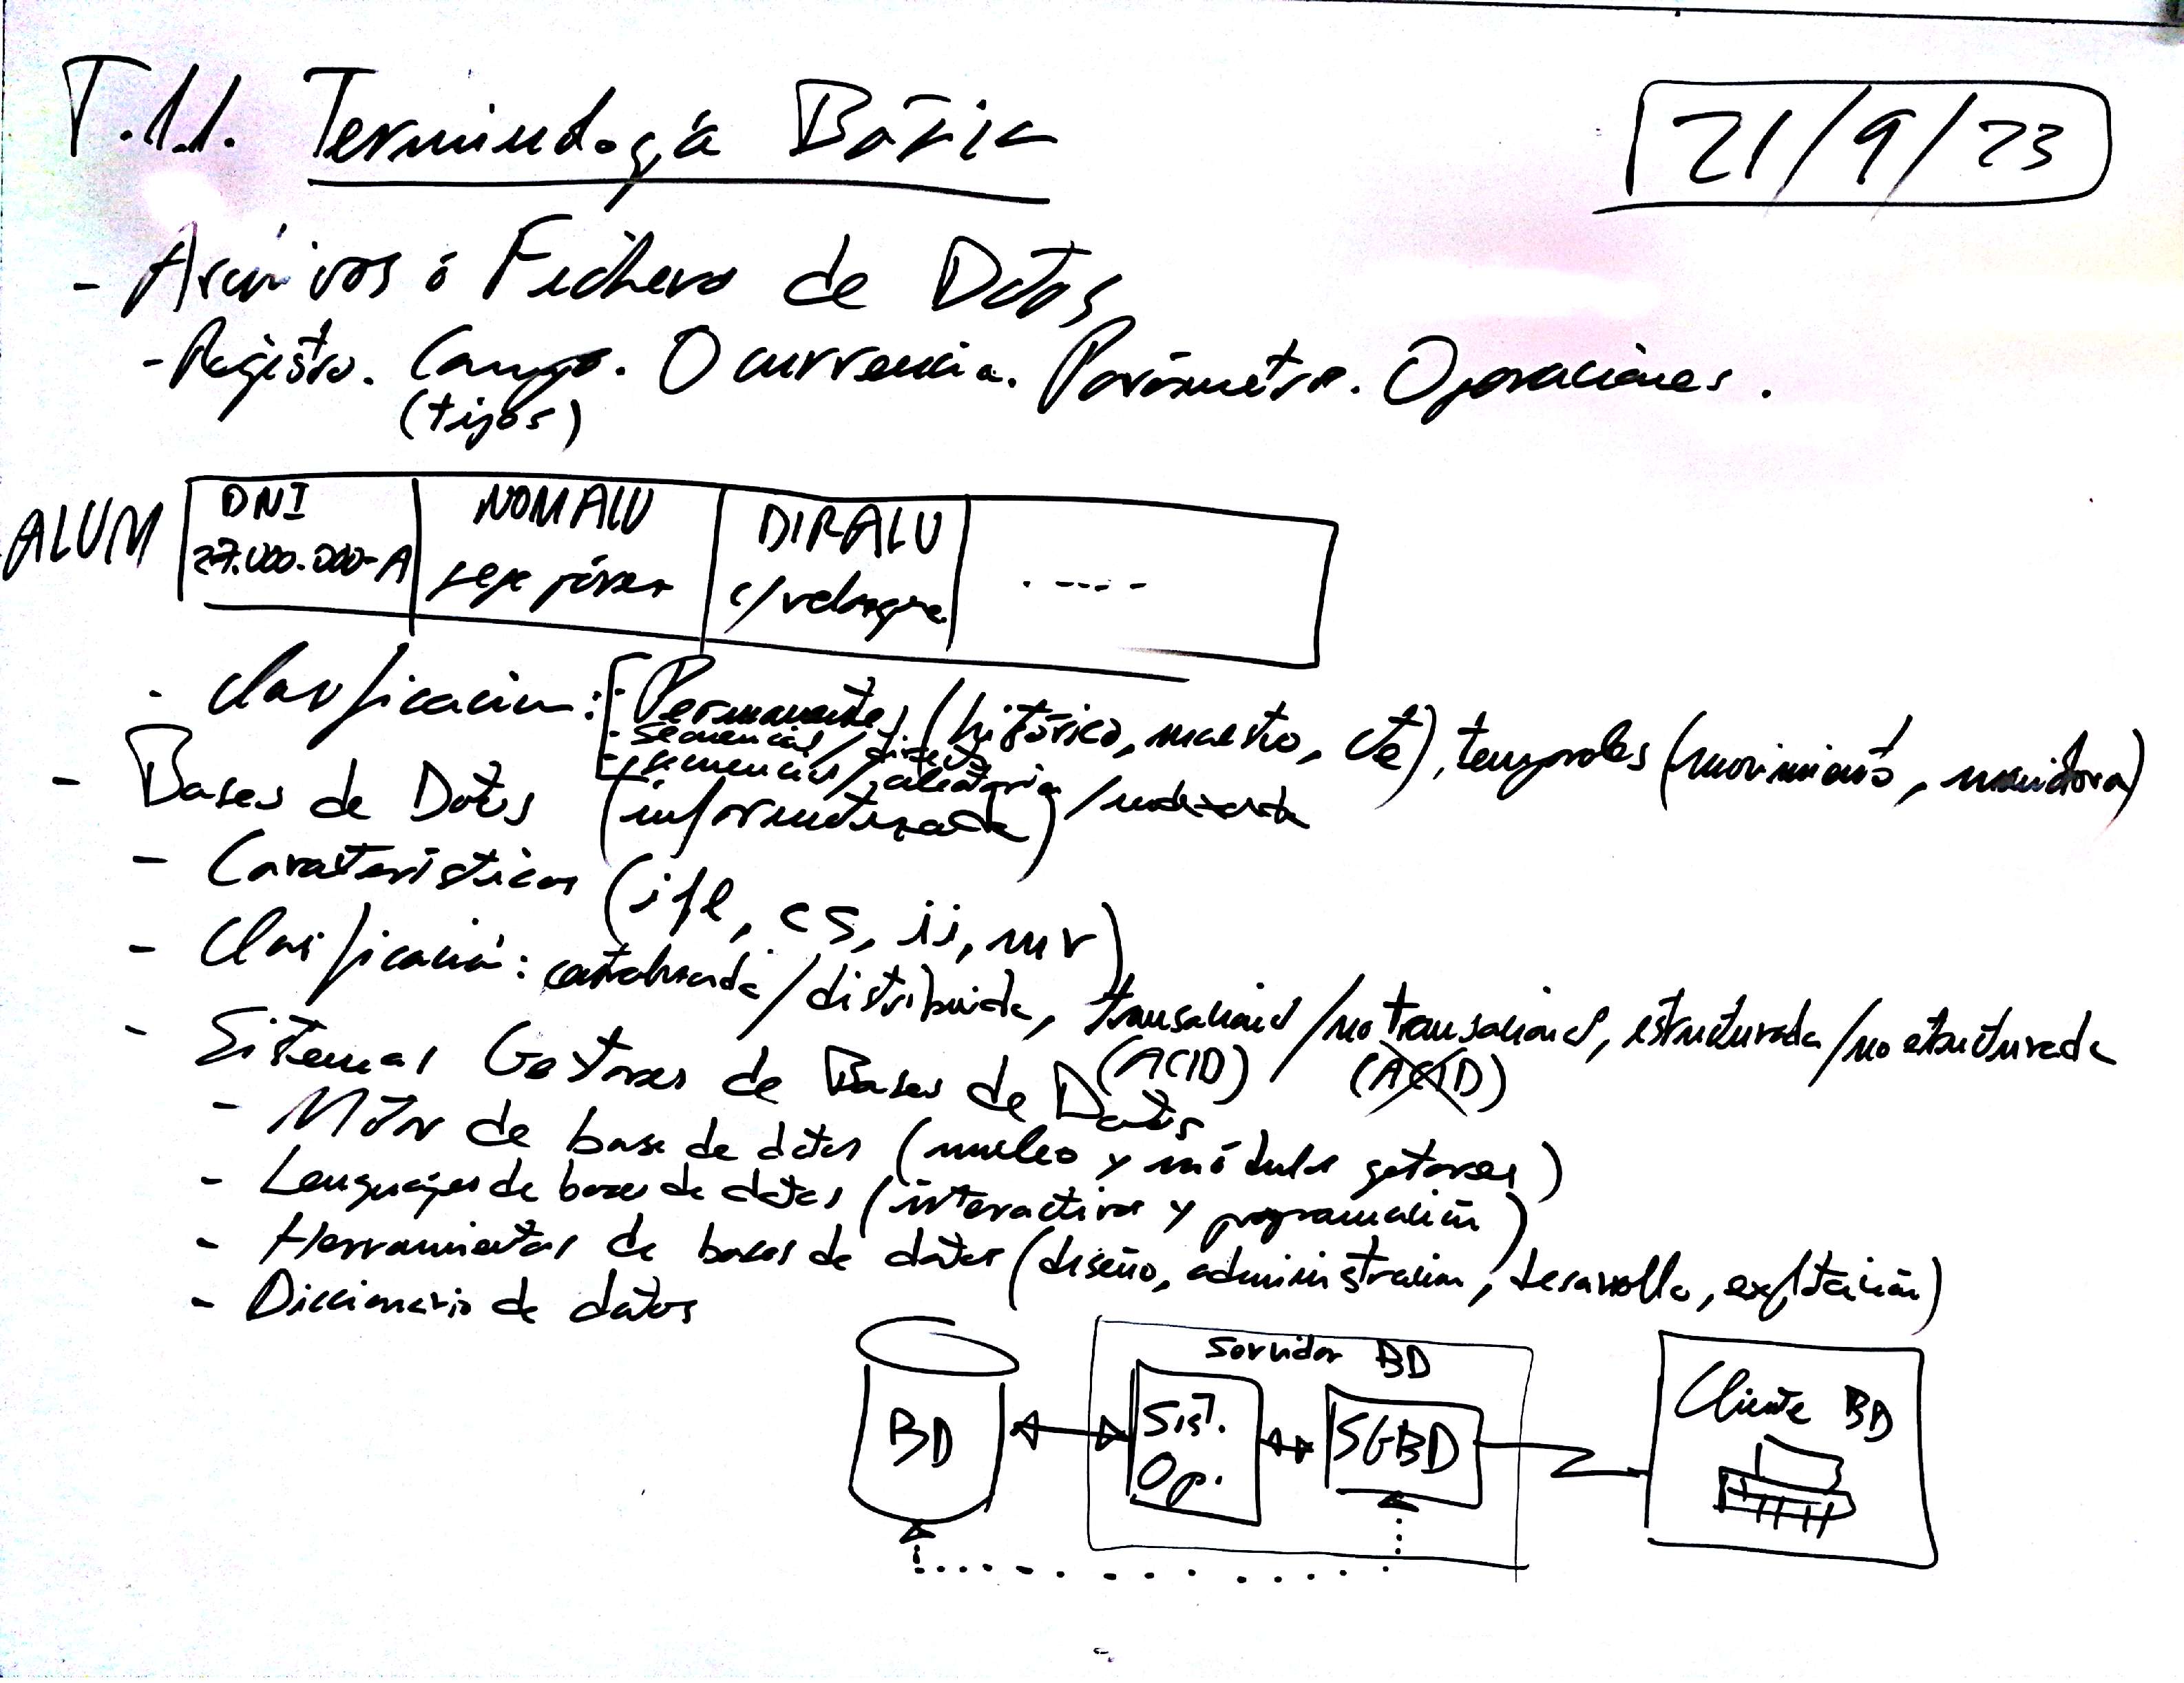 T.1.1. Terminología Básica
21/9/23
- Archivos ó Ficheros de Datos
- Registro. Campo. Ocurrencia. Parámetros. Operaciones.
(tipos)
ALUM
DNI NOMALU DIRALU
27.000.000-A pepe pérez c/ velázque -----
- Clasificación: - Permanentes (histórico, maestro, cte), temporales (movimiento, maniobra)
- secuencial / directo
- secuencial / aleatoria / indexada
- Bases de Datos (informatizada)
- Caraterísticas (ifl, cs, ii, mr)
- Clasificación: centralizada / distribuida, transacional / no transacional, estructurada / no estructurada
(ACID) (ACID)
- Sistemas Gestores de Bases de Datos
- Motor de base de datos (nucleo y módulos gestores)
- Lenguajes de bases de datos (interactivos y programación)
- Herramientas de bases de datos (diseño, administracion, desarrollo, explotación)
- Diccionario de datos
BD
Servidor BD
Sist. Op.
SGBD
Cliente BD